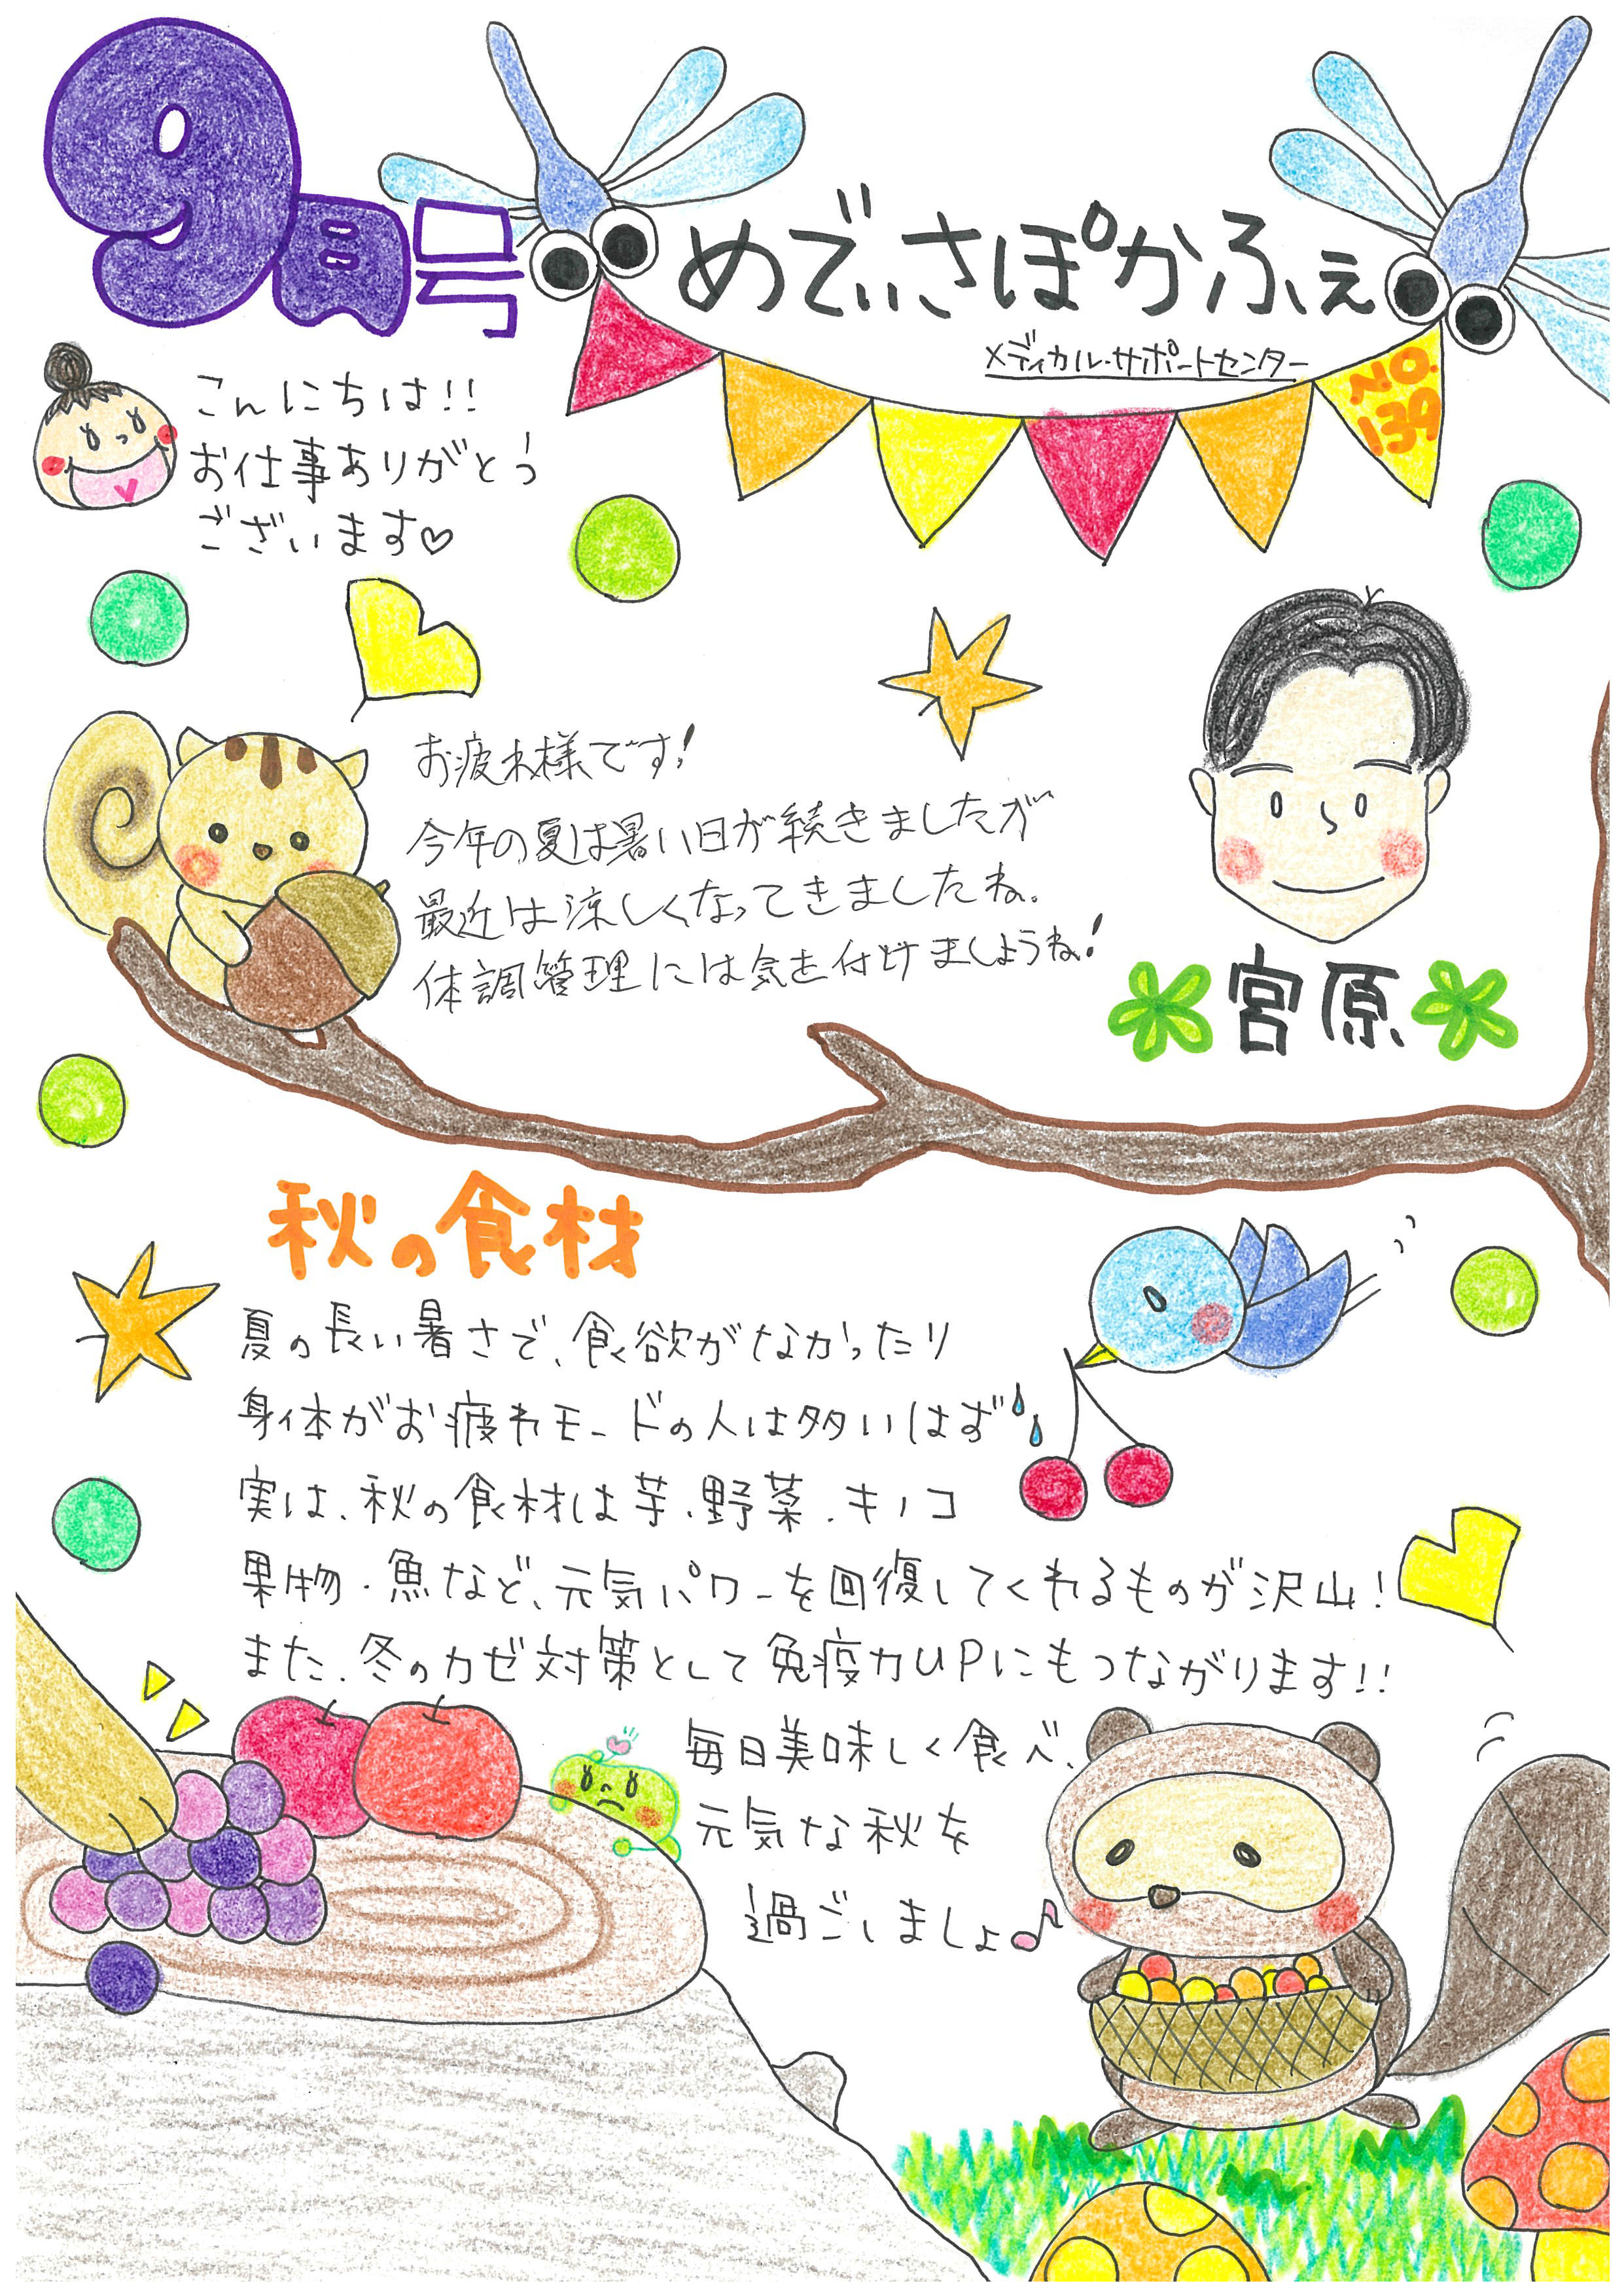 9月号
めでぃさぽかふぇ
メディカル・サポートセンター
NO.
139
こんにちは!!
お仕事ありがとう
ございます♡
お疲れ様です!
今年の夏は暑い日が続きましたが
最近は涼しくなってきましたね。
体調管理には気を付けましょうね!
宮原
秋の食材
夏の長い暑さで、食欲がなかったり
身体がお疲れモードの人は多いはず
実は、秋の食材は芋、野菜、キノコ
果物・魚など、元気パワーを回復してくれるものが沢山!
また、冬のカゼ対策として免疫力UPにもつながります!!
毎日美味しく食べ、
元気な秋を
過ごしましょ♪